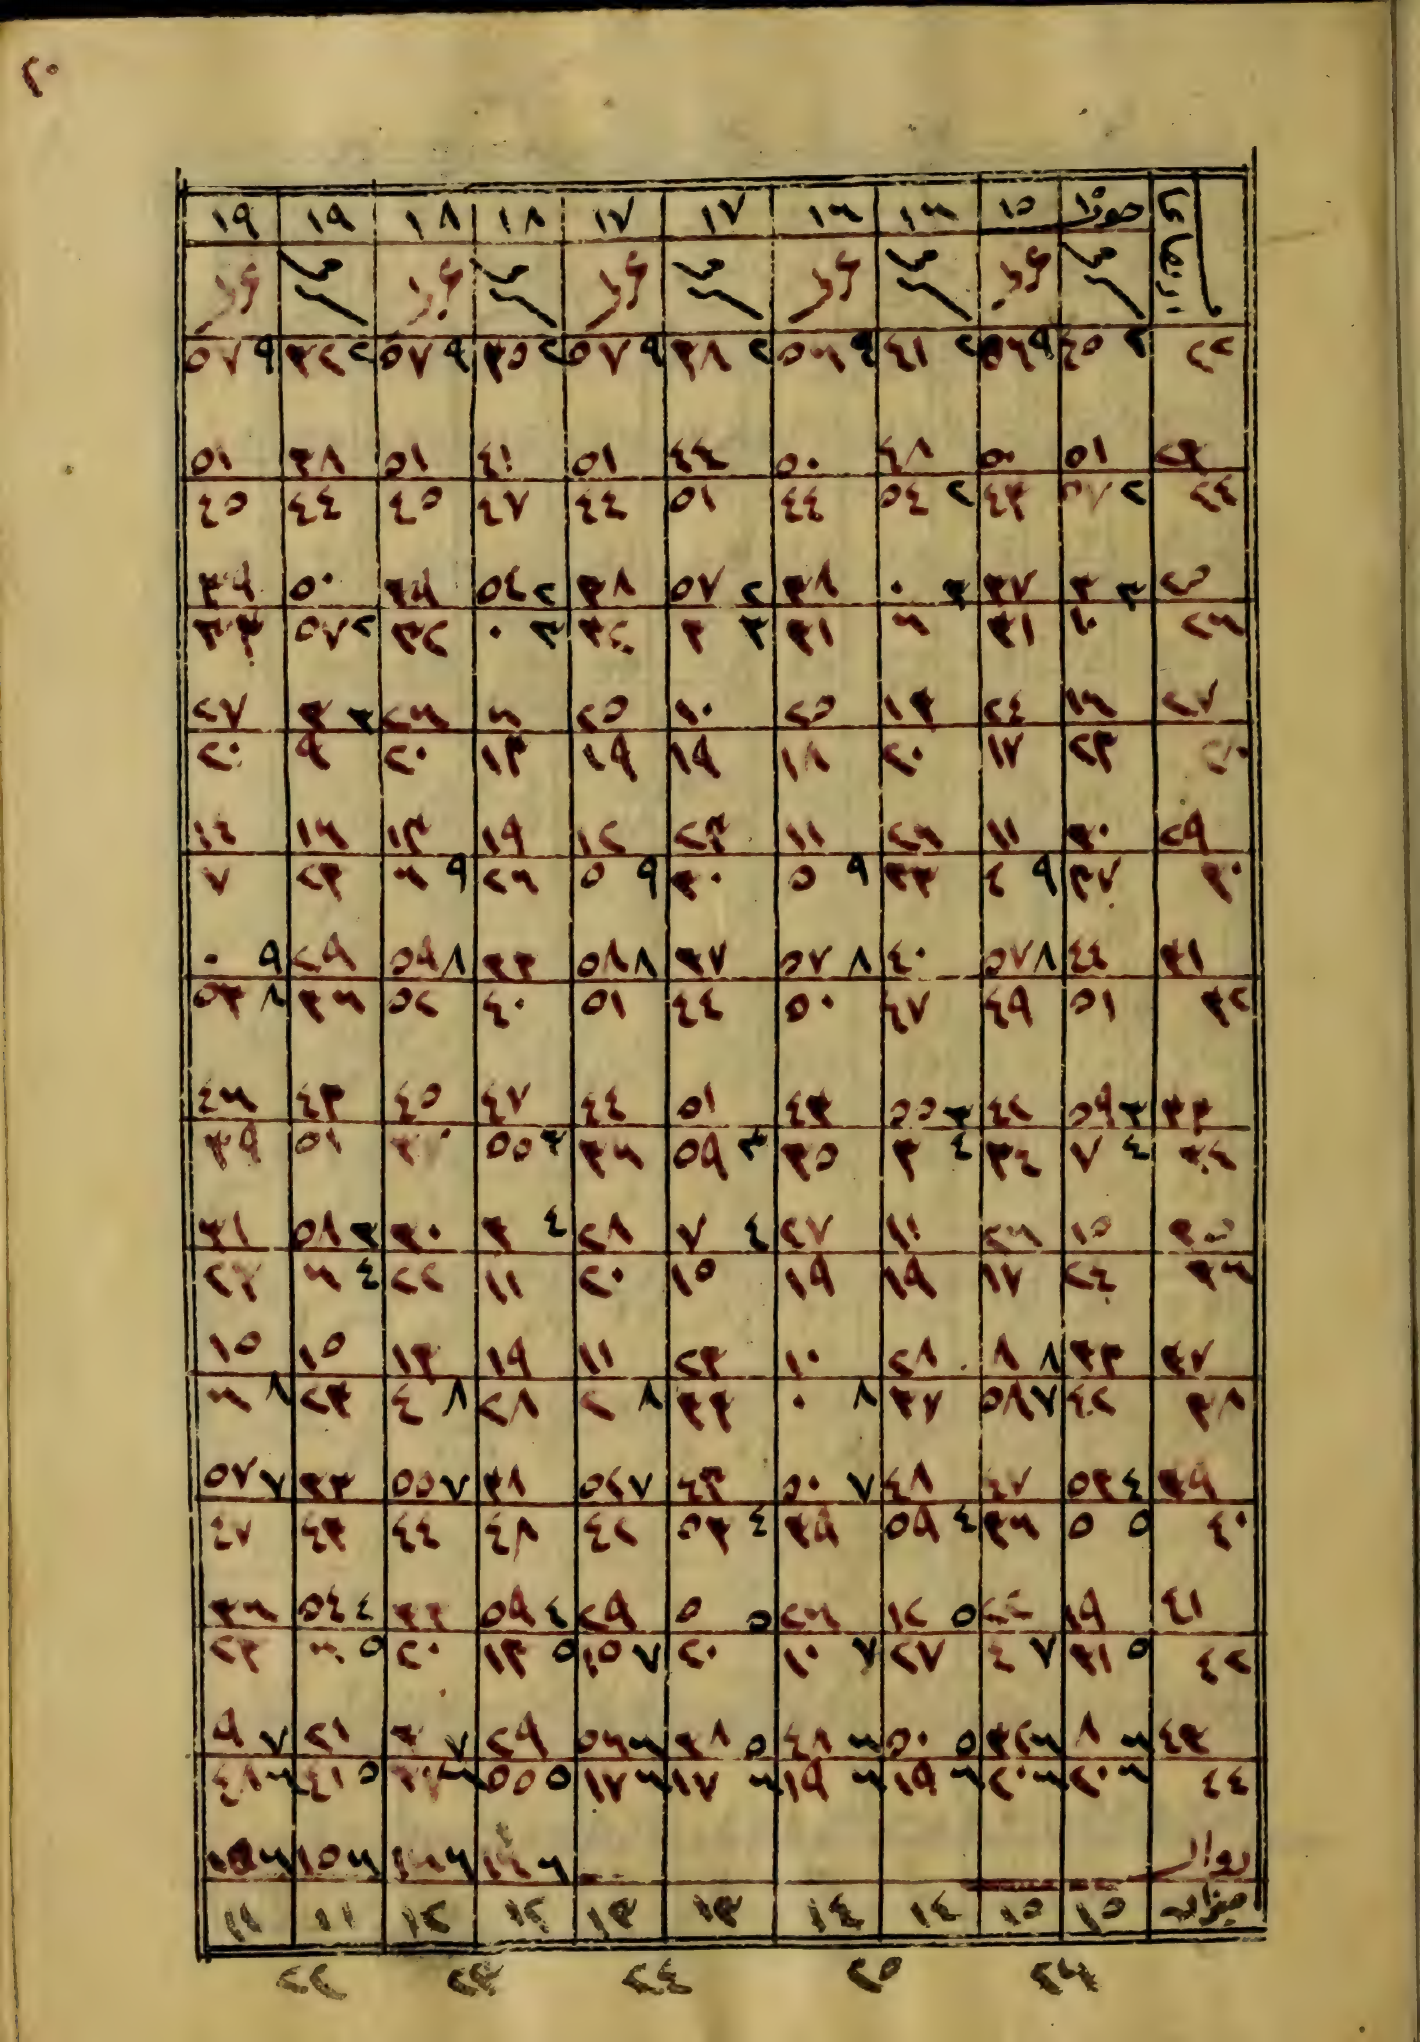 ٢٠
حوت ١٥ ١٦ ١٦ ١٧ ١٧ ١٨ ١٨ ١٩ ١٩
٢٢ ٢ ٤٥ ٩ ٥٦ ٢ ٤١ ٩ ٥٦ ٢ ٣٨ ٩ ٥٧ ٢ ٣٥ ٩ ٥٧ ٢ ٣٢ ٩ ٥٧
٢٣ ٥١ ٥٠ ٤٨ ٥٠ ٤٤ ٥١ ٤١ ٥١ ٣٨ ٥١
٢٤ ٢ ٥٧ ٤٣ ٢ ٥٤ ٤٤ ٥١ ٤٤ ٤٧ ٤٥ ٤٤ ٤٥
٢٥ ٣ ٣ ٣٧ ٣ ٠ ٣٨ ٢ ٥٧ ٣٨ ٢ ٥٤ ٣٩ ٥٠ ٣٩
٢٦ ١٠ ٣١ ٦ ٣١ ٣ ٣ ٣٢ ٣ ٠ ٣٢ ٢ ٥٧ ٣٣
٢٧ ١٦ ٢٤ ١٣ ٢٥ ١٠ ٢٥ ٦ ٢٦ ٣ ٣ ٢٧
٢٣ ١٧ ٢٠ ١٨ ١٩ ١٩ ١٣ ٢٠ ٩ ٢٠
٢٩ ٣٠ ١١ ٢٦ ١١ ٢٣ ١٢ ١٩ ١٣ ١٦ ١٤
٣٠ ٣٧ ٩ ٤ ٣٣ ٩ ٥ ٣٠ ٩ ٥ ٢٦ ٩ ٦ ٢٣ ٧
٣١ ٤٤ ٨ ٥٧ ٤٠ ٨ ٥٧ ٣٧ ٨ ٥٨ ٣٣ ٨ ٥٩ ٢٩ ٩ ٠
٣٢ ٥١ ٤٩ ٤٧ ٥٠ ٤٤ ٥١ ٤٠ ٥٢ ٣٦ ٨ ٥٣
٣٣ ٣ ٥٩ ٤٢ ٣ ٥٥ ٤٣ ٥١ ٤٤ ٤٧ ٤٥ ٤٣ ٤٦
٣٤ ٤ ٧ ٣٤ ٤ ٣ ٣٥ ٣ ٥٩ ٣٦ ٣ ٥٥ ٥١ ٣٩
٣٥ ١٥ ٢٦ ١١ ٢٧ ٤ ٧ ٢٨ ٤ ٣ ٣٠ ٣ ٥٨ ٣١
٣٦ ٢٤ ١٧ ١٩ ١٩ ١٥ ٢٠ ١١ ٢٢ ٤ ٦ ٢٣
٣٧ ٣٣ ٨ ٨ ٢٨ ١٠ ٢٣ ١١ ١٩ ١٣ ١٥ ١٥
٣٨ ٤٢ ٧ ٥٨ ٣٧ ٨ ٠ ٣٣ ٨ ٢ ٢٨ ٨ ٤ ٢٣ ٨ ٦
٣٩ ٤ ٥٣ ٤٧ ٤٨ ٧ ٥٠ ٤٣ ٧ ٥٢ ٣٨ ٧ ٥٥ ٣٣ ٧ ٥٧
٤٠ ٥ ٥ ٣٦ ٤ ٥٩ ٣٩ ٤ ٥٣ ٤٢ ٤٨ ٤٤ ٤٣ ٤٧
٤١ ١٩ ٢٢ ٥ ١٢ ٢٦ ٥ ٥ ٢٩ ٤ ٥٩ ٣٣ ٤ ٥٤ ٣٦
٤٢ ٥ ٣١ ٧ ٤ ٢٧ ٧ ١٠ ٢٠ ٧ ١٥ ٥ ١٣ ٢٠ ٥ ٦ ٢٣
٤٣ ٦ ٨ ٦ ٣٢ ٥ ٥٠ ٦ ٤٨ ٥ ٣٨ ٦ ٥٦ ٢٩ ٧ ٣ ٢١ ٧ ٩
٤٤ ٦ ٢٠ ٦ ٢٠ ٦ ١٩ ٦ ١٩ ٦ ١٧ ٦ ١٧ ٥ ٥٥ ٥ ٤١ ٦ ٤٨
زوال ٦ ١٥
ميزان ١٥ ١٥ ١٤ ١٤ ١٣ ١٣ ١٢ ١٢ ١١ ١١
٢٦ ٢٥ ٢٤ ٢٣ ٢٢